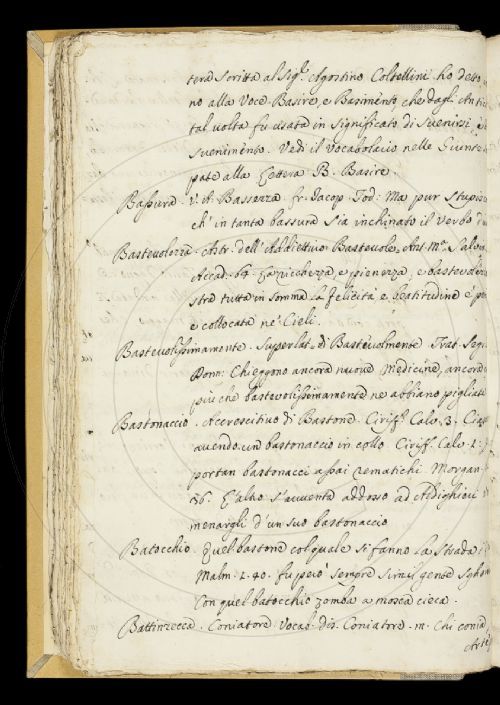 tera scritta al Sig.r Agostino Coltellini ho detto
no alla Voce Basire, e Basimento, che dagli Antic
tal volta fu usata in significato di Svenirsi, e
Svenimento. Vedi il Vocabolario nelle Giunte
pate alla Lettera B. Basire.
Bassura. V. A. Bassezza. fr. Iacop. Tod: Ma pur stupis
ch' in tanta bassura sia inchinato il verbo d
Bastevolezza. Astr. dell'Addiettivo Bastevole. Ant. M.a Salv
Accad. 64. La ricchezza, e pienezza, e bastevolez
stra tutta in somma la felicità e beatitudine è p
e collocata ne' Cieli.
Bastevolissimamente. Superlat. di Bastevolmente. Trat. Segr.
Dom: Chieggono ancora nuove Medicine, ancora
più che bastevolissimamente ne abbiano pigliat
Bastonaccio. Accrescitivo di Bastone. Ciriff. Calv. 3.
avendo un bastonaccio in collo. Ciriff. Calv. 2.
portan bastonacci assai rematichi. Morgan.
36. E l'altro s'avventa addosso ad
menargli d'un suo bastonaccio
Batocchio. Quel bastone col quale si fanno la strada
Malm. 2. 40. fu però sempre simil gente
Con quel batocchio zomba a mosca cieca.
Battinzecca. Coniatore. Vocab. Dis. Coniatore. m. Chi conia
Arte